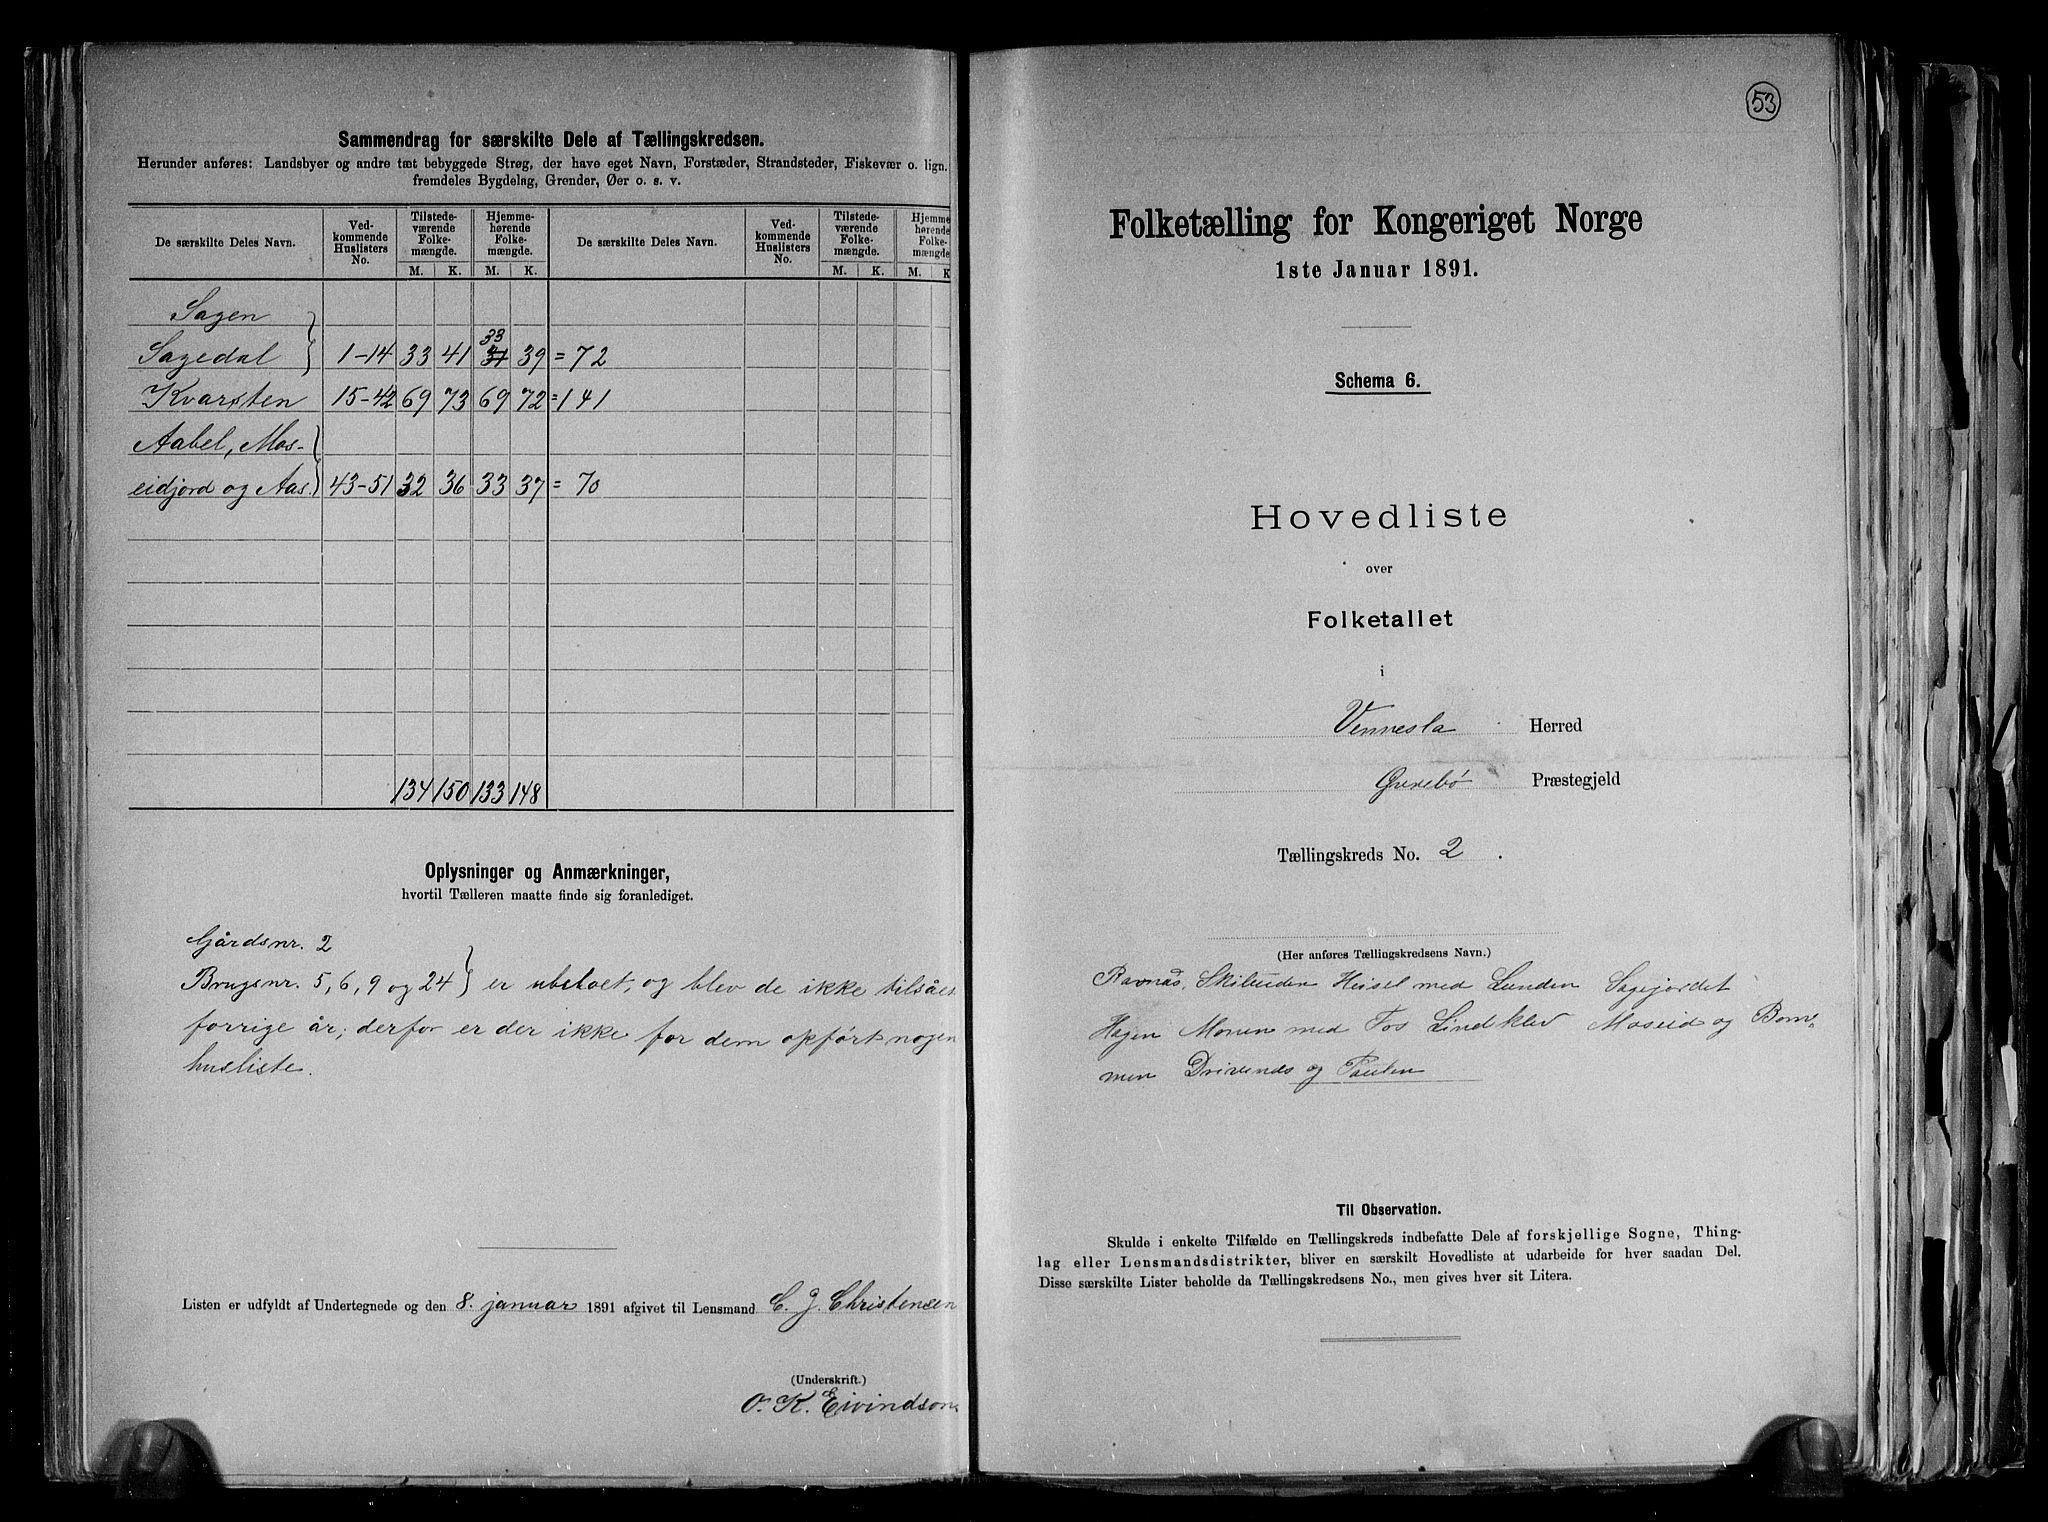 Sammendrag for særskilte Dele af Tællingskredsen.
Herunder anføres: Landsbyer og andre tæt bebyggede Strøg, der have eget Navn, Forstæder, Strandsteder, Fiskevær o. lign.
fremdeles Bygdelag, Grender, Øer o. s. v.
De særskilte Deles Navn. Ved-kommende Huslisters No. Tilstede-værende Folke-mængde. Hjemme-hørende Folke-mængde. De særskilte Deles Navn. Ved-kommende Huslisters No. Tilstede-værende Folke-mængde. Hjemme-hørende Folke-mængde
M. K. M. K. M. K. M. K
Sagen
33
Sagedal 1-14 33 41 31 39 = 72
Kvarsten 15-42 69 73 69 72 = 141
Aabel, Mos-
eidjord og Aas. 43-51 32 36 33 37 = 70
134 150 133 148
Oplysninger og Anmærkninger,
hvortil Tælleren maatte finde sig foranlediget.
Gårdsnr. 2
Brugsnr. 5, 6, 9 og 24 } er ubeboet, og blev de ikke tilsået
forrige år; derfor er der ikke for dem opført nogen
husliste.
Listen er udfyldt af Undertegnede og den 8. januar 1891 afgivet til Lensmand C. J. Christensen
(Underskrift.)
O. K. Eivindson.
53
Folketælling for Kongeriget Norge
1ste Januar 1891.
Schema 6.
Hovedliste
over
Folketallet
i
Vennesla Herred
Øvrebø Præstegjeld
Tællingskreds No. 2.
(Her anføres Tællingskredsens Navn.)
Ravnås, Heisel med Lunden Sagejordet
Hagen Monen med Fos Lindklev Moseid og Bom-
men Drivenes og
Til Observation.
Skulde i enkelte Tilfælde en Tællingskreds indbefatte Dele af forskjellige Sogne, Thing-
lag eller Lensmandsdistrikter, bliver en særskilt Hovedliste at udarbeide for hver saadan Del.
Disse særskilte Lister beholde da Tællingskredsens No., men gives hver sit Litera.